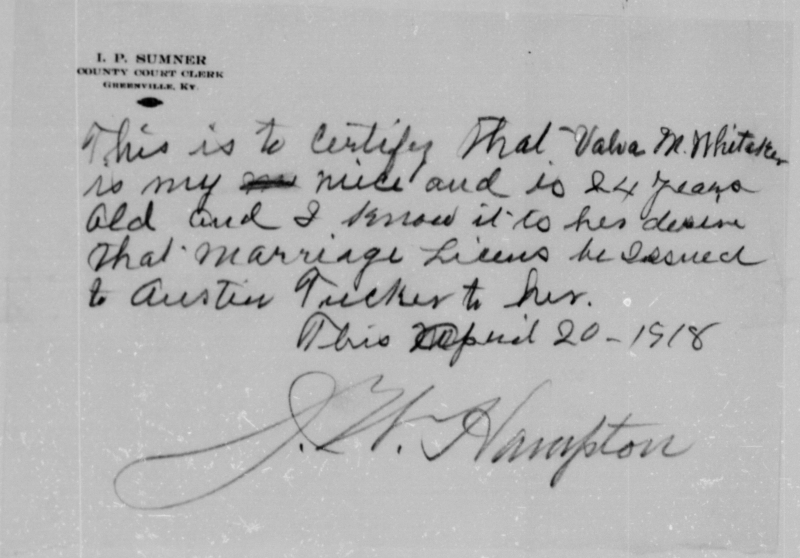 I. P. SUMNER
COUNTY COURT CLERK
GREENVILLE, KY.
This is to Certify that Valva M. Whitaker
is my nice and is 24 years
old and I know it to her desire
that marriage Licens be Issued
to Austin Tucker to her.
This April 20 - 1918
J. W. Hampton